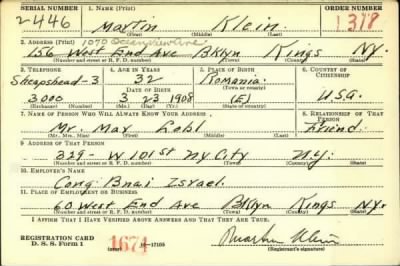 SERIAL NUMBER 1. NAME (Print)
2446 Morton Klein 1318
(First) (Middle) (Last)
2. ADDRESS (Print) 1070 Oceanview Ave
156 West End Ave Bklyn Kings N.Y.
(Number and street or R. F. D. number) (Town) (County) (State)
3. TELEPHONE 4. AGE IN YEARS 5. PLACE OF BIRTH 6. COUNTRY OF CITIZENSHIP
Sheepshead-3 32 Romania
DATE OF BIRTH (Town or county)
3000 3 23 1908 (E) U.S.A.
(Mo.) (Day) (Yr.) (State or country)
7. NAME OF PERSON WHO WILL ALWAYS KNOW YOUR ADDRESS 8. RELATIONSHIP OF THAT PERSON
Mr. Max Lobl Friend
(Mr., Mrs., Miss) (First) (Middle) (Last)
9. ADDRESS OF THAT PERSON
339- W. 101 St N.Y. City N.Y.
(Number and street or R. F. D. number) (Town) (County) (State)
10. EMPLOYER'S NAME
Cong. Bnai Israel
11. PLACE OF EMPLOYMENT OR BUSINESS
60 West End Ave Bklyn Kings N.Y.
(Number and street or R. F. D. number) (Town) (County) (State)
I AFFIRM THAT I HAVE VERIFIED ABOVE ANSWERS AND THAT THEY ARE TRUE.
REGISTRATION CARD
D. S. S. Form 1 1674 16—17105 Klein
(over) (Registrant's signature)